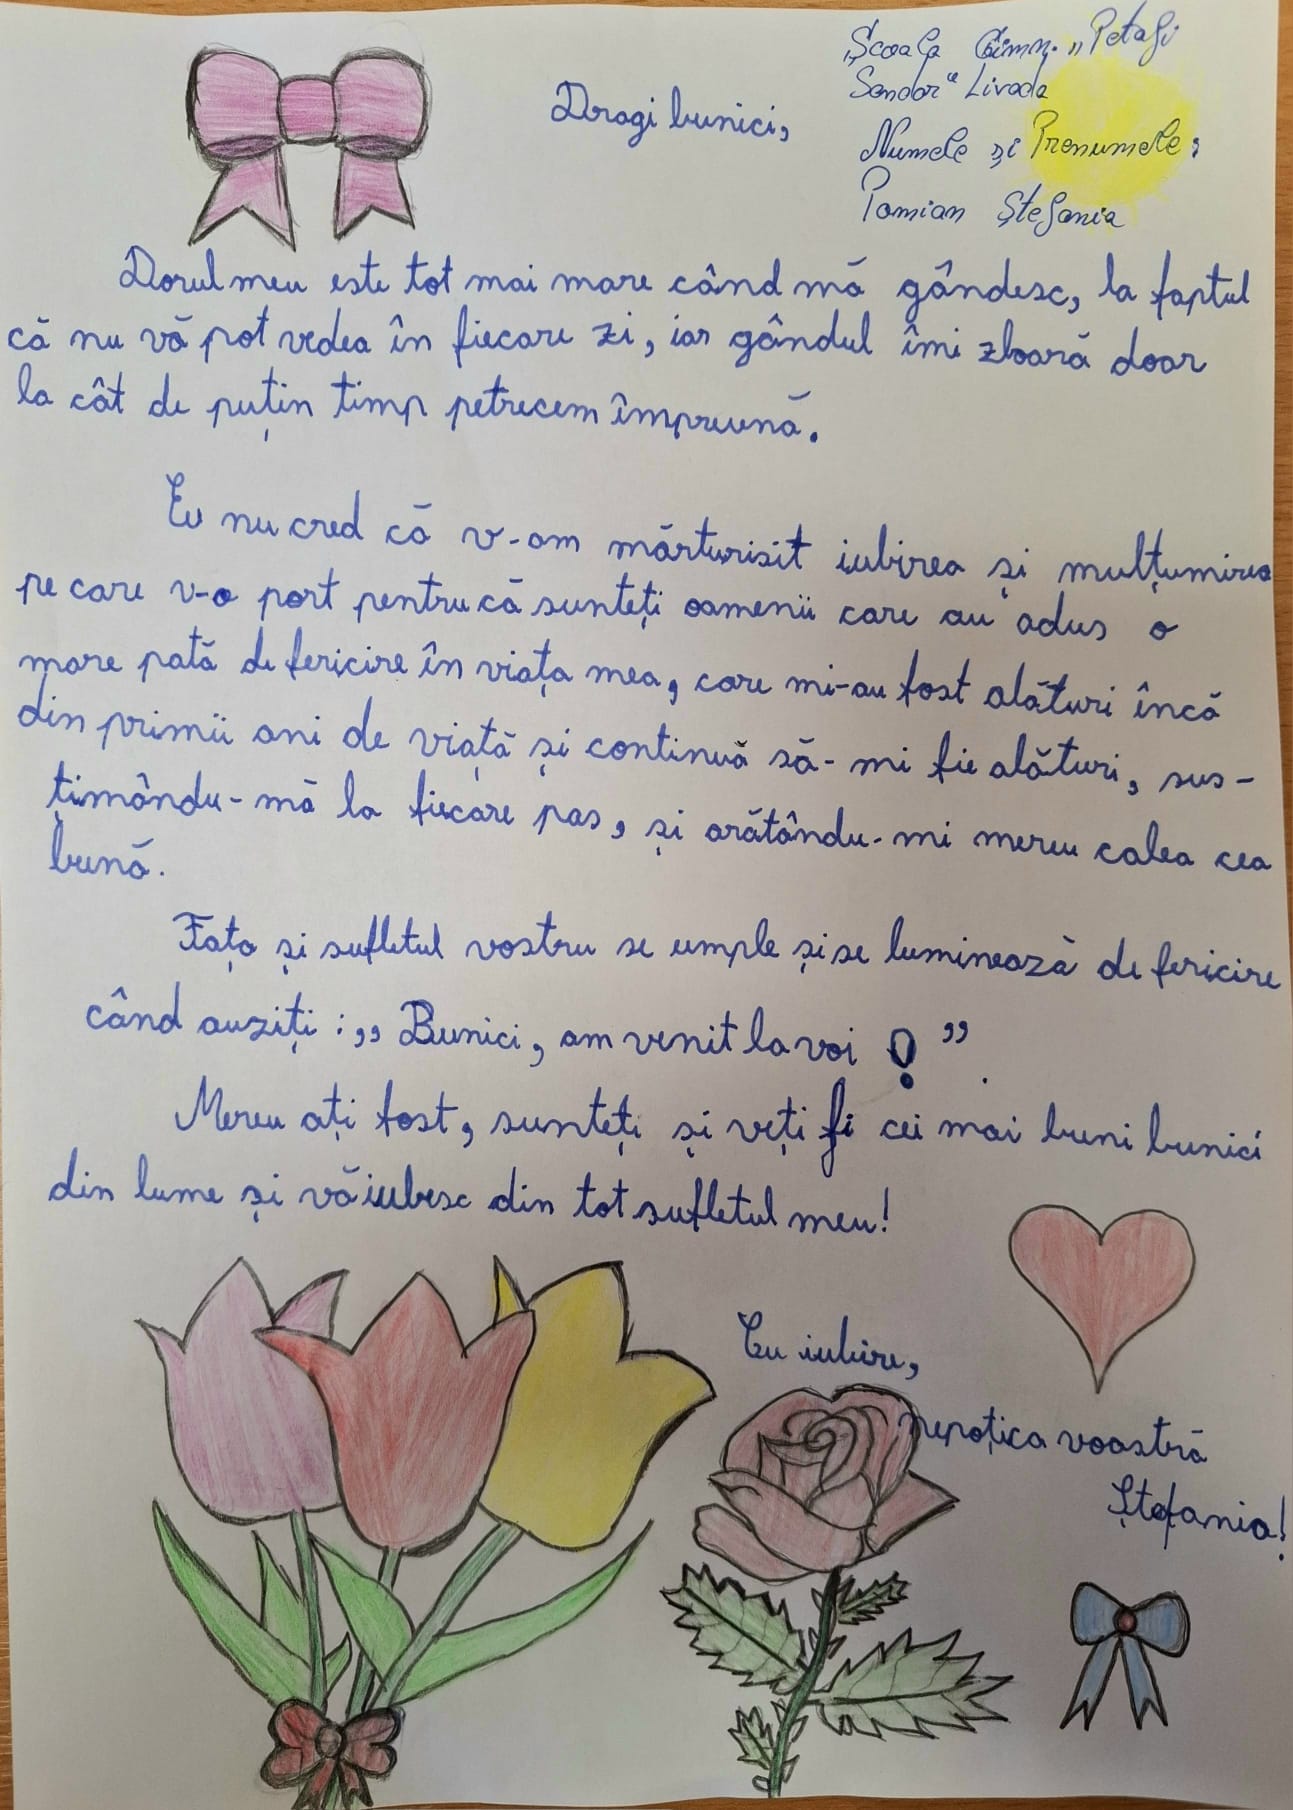 Școala Gimn. „Petofi
Sandor" Livada
Numele și Prenumele:
Pomian Ștefania
Dragi bunici,
Dorul meu este tot mai mare când mă gândesc, la faptul
că nu vă pot vedea în fiecare zi, iar gândul îmi zboară doar
la cât de puțin timp petrecem împreună.
Eu nu cred că v-am mărturisit iubirea și mulțumirea
pe care v-o port pentru că sunteți oamenii care au adus o
mare pată de fericire în viața mea, care mi-au fost alături încă
din primii ani de viață și continuă să-mi fie alături, sus-
țimându-mă la fiecare pas, și arătându-mi mereu calea cea
bună.
Fața și sufletul vostru se umple și se luminează de fericire
când auziți: „Bunici, am venit la voi!”.
Mereu ați fost, sunteți și veți fi cei mai buni bunici
din lume și vă iubesc din tot sufletul meu!
Cu iubire,
nepoțica voastră
Ștefania!